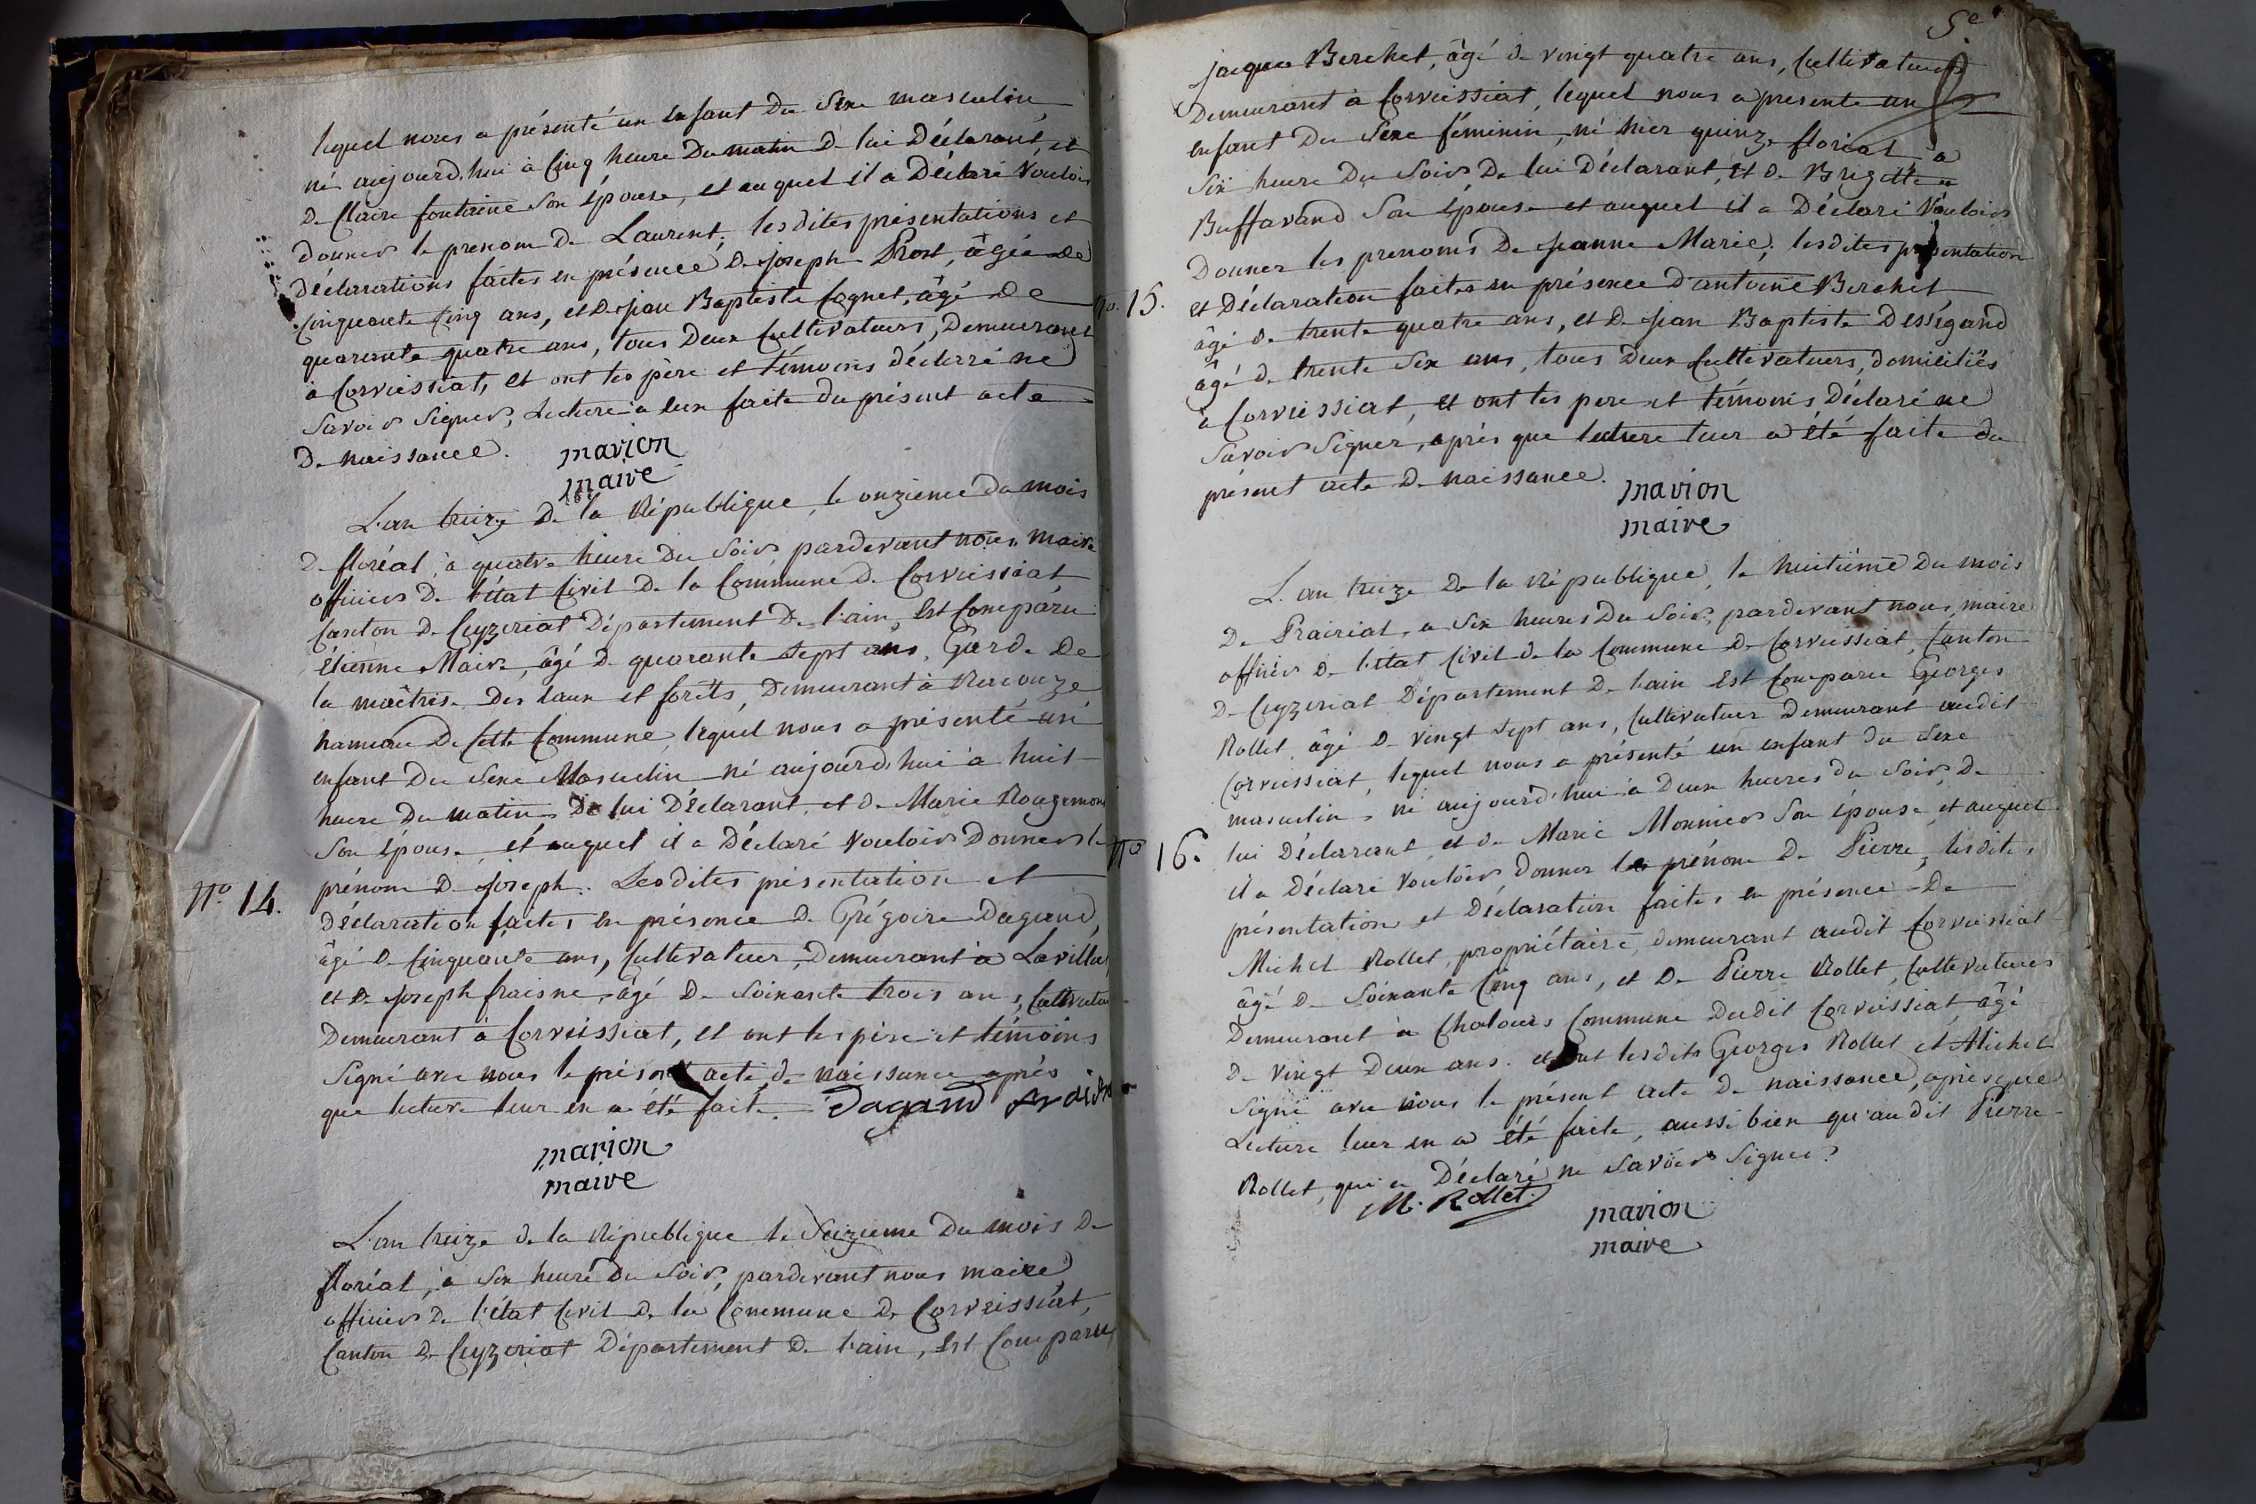 lequel nous a présenté un enfant du Sexe masculin,
né aujourd'hui à Cinq heure Du matin D. lui Déclarant, et
D. Claire fontaine Son épouse, et auquel il a Déclaré Vouloir
donner le prenom De Laurent; lesdites présentations et
Déclarations faites en présence De joseph Prost, âgée de
Cinquante Cinq ans, et De jean Baptiste Cognet, âgé De
quarante quatre ans, tous Deux Cultivateurs, Demeurant
à Corveissiat, et ont les père et témoins déclaré ne
Savoir Signer, Lecture a eux faite du présent acte
De naissance.
marion
maire
L'an treize De la République, le onzieme du mois
De floréal, à quatre heure Du Soir pardevant nous, Maire
officier De l'état Civil De la Commune De Corveissiat
Canton De Ceyzeriat Département De l'ain, Est Comparu
étienne Maire, âgé De quarante Sept ans, Garde De
la maîtrise Des Eaux et forêts, Demeurant à
hameau De Cette Commune, lequel nous a présenté un
enfant Du Sexe Masculin né aujourd'hui à huit
heure Du matin De lui Déclarant, et De Marie Rougemont
Son épouse, et auquel il a Déclaré Vouloir Donner le
Nº. 14.
prénom De joseph. Lesdites présentation et
Déclaration faites en présence De Grégoire Dagand,
âgé De Cinquante ans, Cultivateur, Demeurant à Lavillat
et De joseph fraisne, âgé De Soixante trois ans, Cultivateur
Demeurant à Corveissiat, et ont les père et témoins
Signé avec nous le présent acte de naissance après
que lecture leur en a été faite. Dagand
marion
maire
L'an treize de la République le Seizieme Du mois De
floréal, à Six heure Du Soir, pardevant nous maire
officier De l'état Civil De la Commune De Corveissiat,
Canton De Ceyzeriat Département De l'ain, Est Comparu
5e.
jacques Berchet, âgé de vingt quatre ans, Cultivateur
Demeurant à Corveissiat, lequel nous a presenté un
enfant Du Sexe féminin, né hier quinze floréal, à
Six heure Du Soir De lui Déclarant, et De Brigitte
Buffavand Son épouse et auquel il a Déclaré Vouloir
Donner les prenoms De jeanne Marie; lesdites présentation
no. 15.
et Déclaration faites en présence D'antoine Berchet
âgé De trente quatre ans, et De jean Baptiste Dessegand
âgé De trente Six ans, tous Deux Cultivateurs, domiciliés
à Corveissiat, et ont les pere et témoins Déclaré ne
Savoir Signer, après que lecture leur a été faite du
présent acte De naissance.
marion
maire
L'an treize De la République, le huitième Du mois
De Prairial, a Six heures Du Soir, pardevant nous, maire
officier De l'état Civil de la Commune De Corveissiat, Canton
De Ceyzeriat Département De l'ain Est Comparu Georges
Rollet âgé De vingt Sept ans, Cultivateur Demeurant audit
Corveissiat, lequel nous a présenté un enfant du Sexe
masculin, né aujourd'hui à Deux heures du Soir, De
no 16.
lui Déclarant, et De Marie Monnier Son épouse, et auquel
il a Déclaré Vouloir donner le prénom De Pierre, lesdites
présentation et Déclaration faites en présence De
Michel Rollet, propriétaire, demeurant audit Corveissiat
âgé De Soixante Cinq ans, et De Pierre Rollet, Cultivateur
Demeurant à Chalours Commune Dudit Corveissiat, âgé
De vingt Deux ans. et ont lesdits Georges Rollet et Michel
Signé avec nous le présent acte De naissance, après que
Lecture leur en a été faite, aussi bien qu'audit Pierre
Rollet, qui a Déclaré ne Savoir Signer.
M. Rollet.
marion
maire